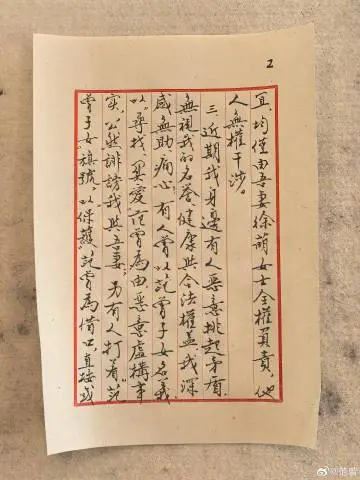 2
宜,均僅由吾妻徐萌女士全權負責,他
人無權干涉。
三、近期我身邊有人惡意挑起矛盾,
無視我的名譽、健康與合法權益,我深
感無助、痛心。有人曾以“范曾子女”名義,
以“尋找、关愛”范曾為由,惡意虛構事
實,公然誹謗我與吾妻;另有人打着“范
曾子女”旗號,以“保護”范曾為借口,直接或
@范曾